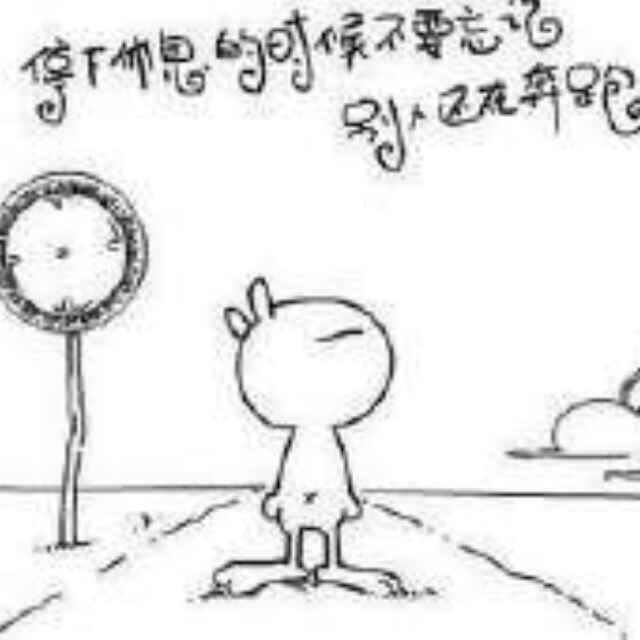 停下休息的时候不要忘记
别人还在奔跑